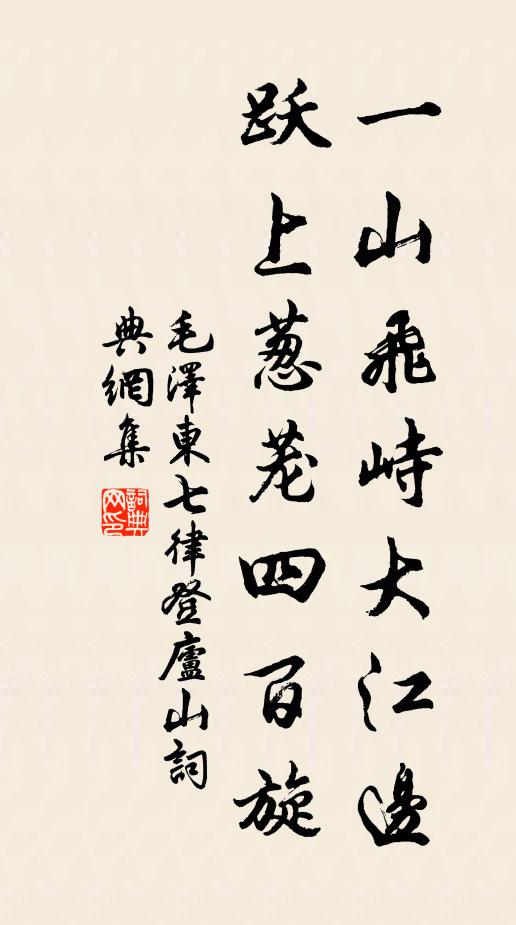 一山飛峙大江邊
跃上葱茏四百旋
毛澤東七律登廬山詞
典網集
詞典网印